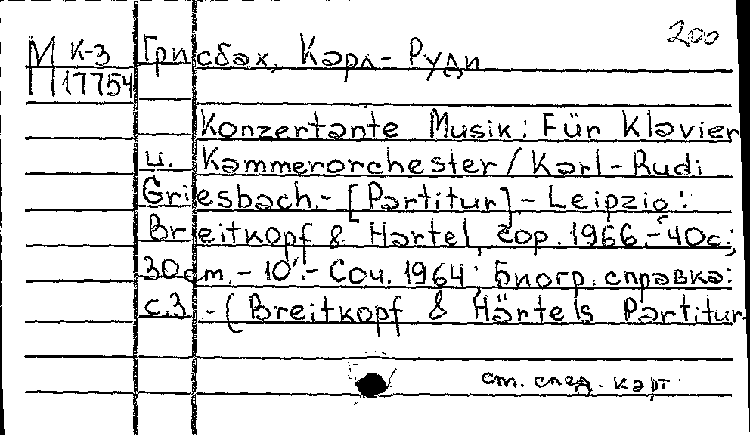 200
М К-3 Грисбах, Карл-Руди
П 17754
Konzertante Musik: Für Klavier
u. Kammerorchester / Karl-Rudi
Griesbach.- [Partitur] - Leipzig:
Breitkopf & Hartel, cop. 1966.-40c;
30cm.-10'.- Соч. 1964; Биогр. справка:
с.3 .-(Breitkopf & Härtels Partitur-
см. след. карт